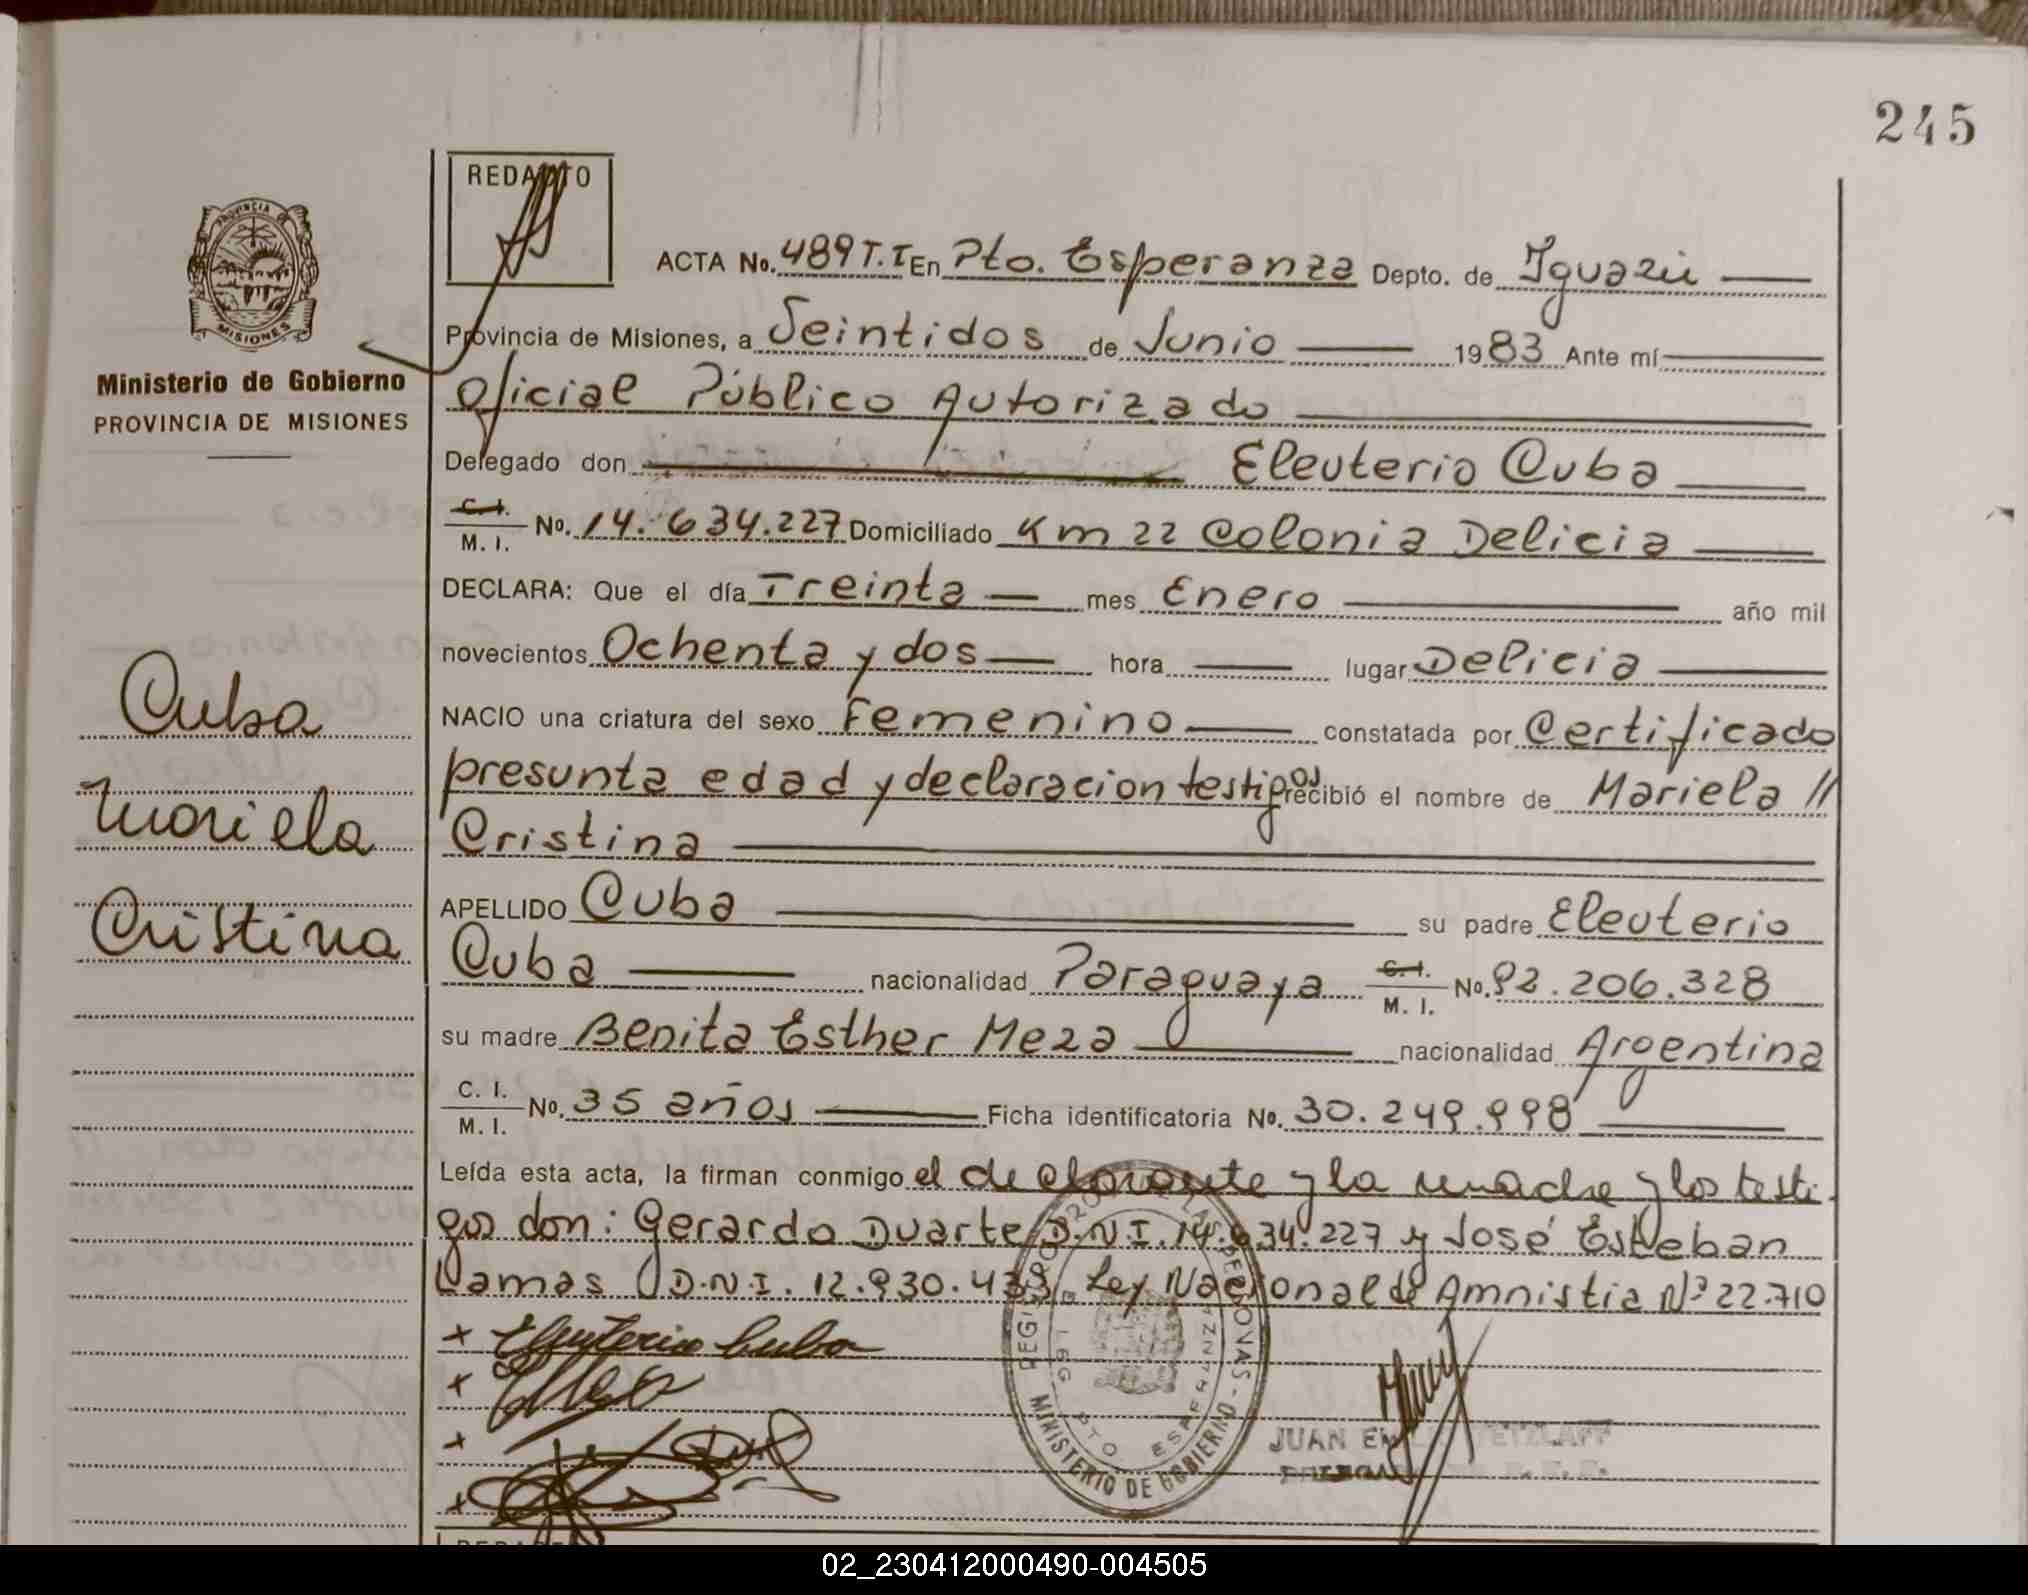 245
REDACTO
ACTA No. 489 T.I En Pto. Esperanza Depto. de Iguazú
Provincia de Misiones, a Veintidos de Junio 1983 Ante mí
Oficial Público Autorizado
Delegado don Eleuterio Cuba
C. I. M. I. No. 14.634.227 Domiciliado Km 22 Colonia Delicia
DECLARA: Que el día Treinta mes Enero año mil
novecientos Ochenta y dos hora lugar Delicia
NACIO una criatura del sexo Femenino constatada por Certificado
presunta edad y declaracion testigos recibió el nombre de Mariela //
Cristina
APELLIDO Cuba su padre Eleuterio
Cuba nacionalidad Paraguaya C. I. M. I. No. 92.206.328
su madre Benita Esther Meza nacionalidad Argentina
C. I. M. I. No. 35 años Ficha identificatoria No. 30.249.998
Leída esta acta, la firman conmigo el declarante y la madre y los testi
gos don: Gerardo Duarte D.N.I. 14.634.227 y José Esteban
Lamas D.N.I. 12.930.433 Ley Nacional de Amnistia Nº 22.710
+ Eleuterio Cuba
+
+
+
MINISTERIO DE GOBIERNO
JUAN TETZLAFF
PROVINCIA DE MISIONES
Ministerio de Gobierno
PROVINCIA DE MISIONES
Cuba
Mariela
Cristina
02_230412000490-004505